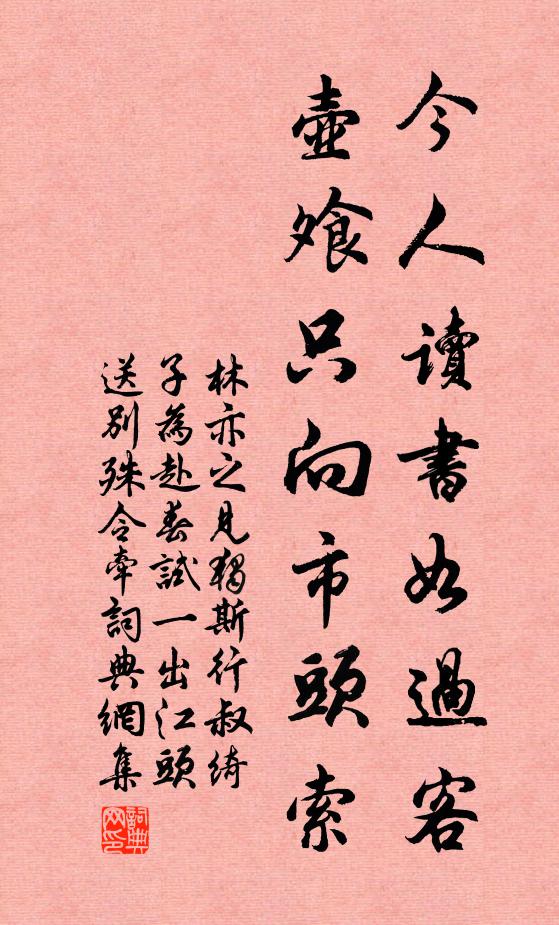 今人讀書如過客
壺飧只向市頭索
林亦之見獨斯行叔綺
子為赴春試一出江頭
送別殊令牽詞典網集
詞典网印